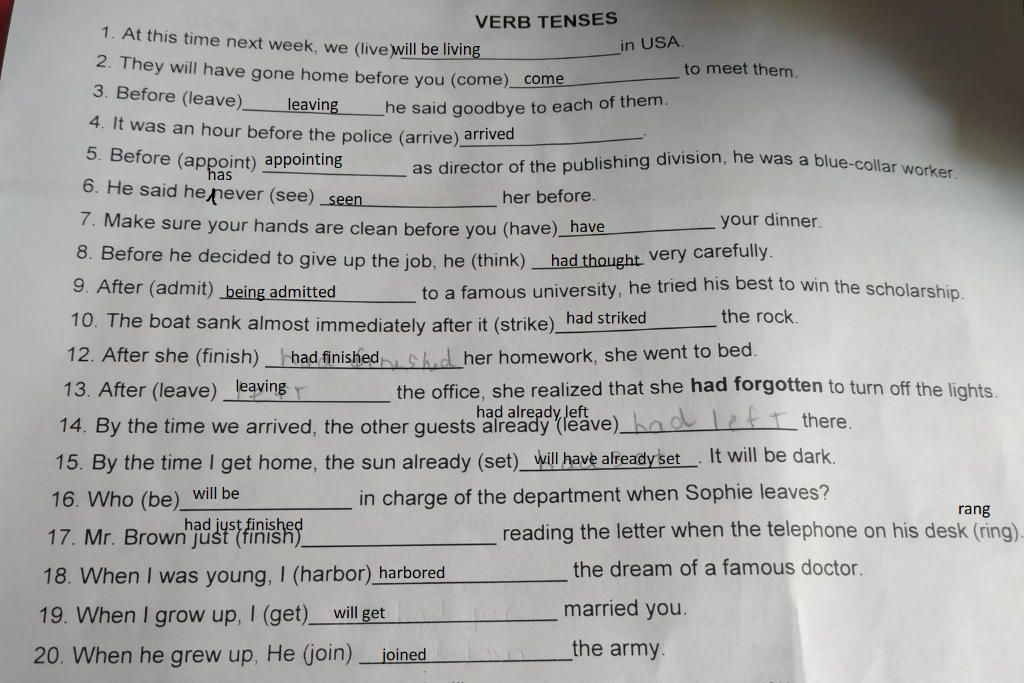 VERB TENSES
1. At this time next week, we (live) will be living in USA.
2. They will have gone home before you (come) come to meet them.
3. Before (leave) leaving he said goodbye to each of them.
4. It was an hour before the police (arrive) arrived.
5. Before (appoint) appointing as director of the publishing division, he was a blue-collar worker.
has
6. He said he never (see) seen her before.
7. Make sure your hands are clean before you (have) have your dinner.
8. Before he decided to give up the job, he (think) had thought very carefully.
9. After (admit) being admitted to a famous university, he tried his best to win the scholarship.
10. The boat sank almost immediately after it (strike) had striked the rock.
12. After she (finish) had finished her homework, she went to bed.
13. After (leave) leaving the office, she realized that she had forgotten to turn off the lights.
had already left
14. By the time we arrived, the other guests already (leave) had left there.
15. By the time I get home, the sun already (set) will have already set. It will be dark.
16. Who (be) will be in charge of the department when Sophie leaves?
had just finished rang
17. Mr. Brown just (finish) reading the letter when the telephone on his desk (ring).
18. When I was young, I (harbor) harbored the dream of a famous doctor.
19. When I grow up, I (get) will get married you.
20. When he grew up, He (join) joined the army.